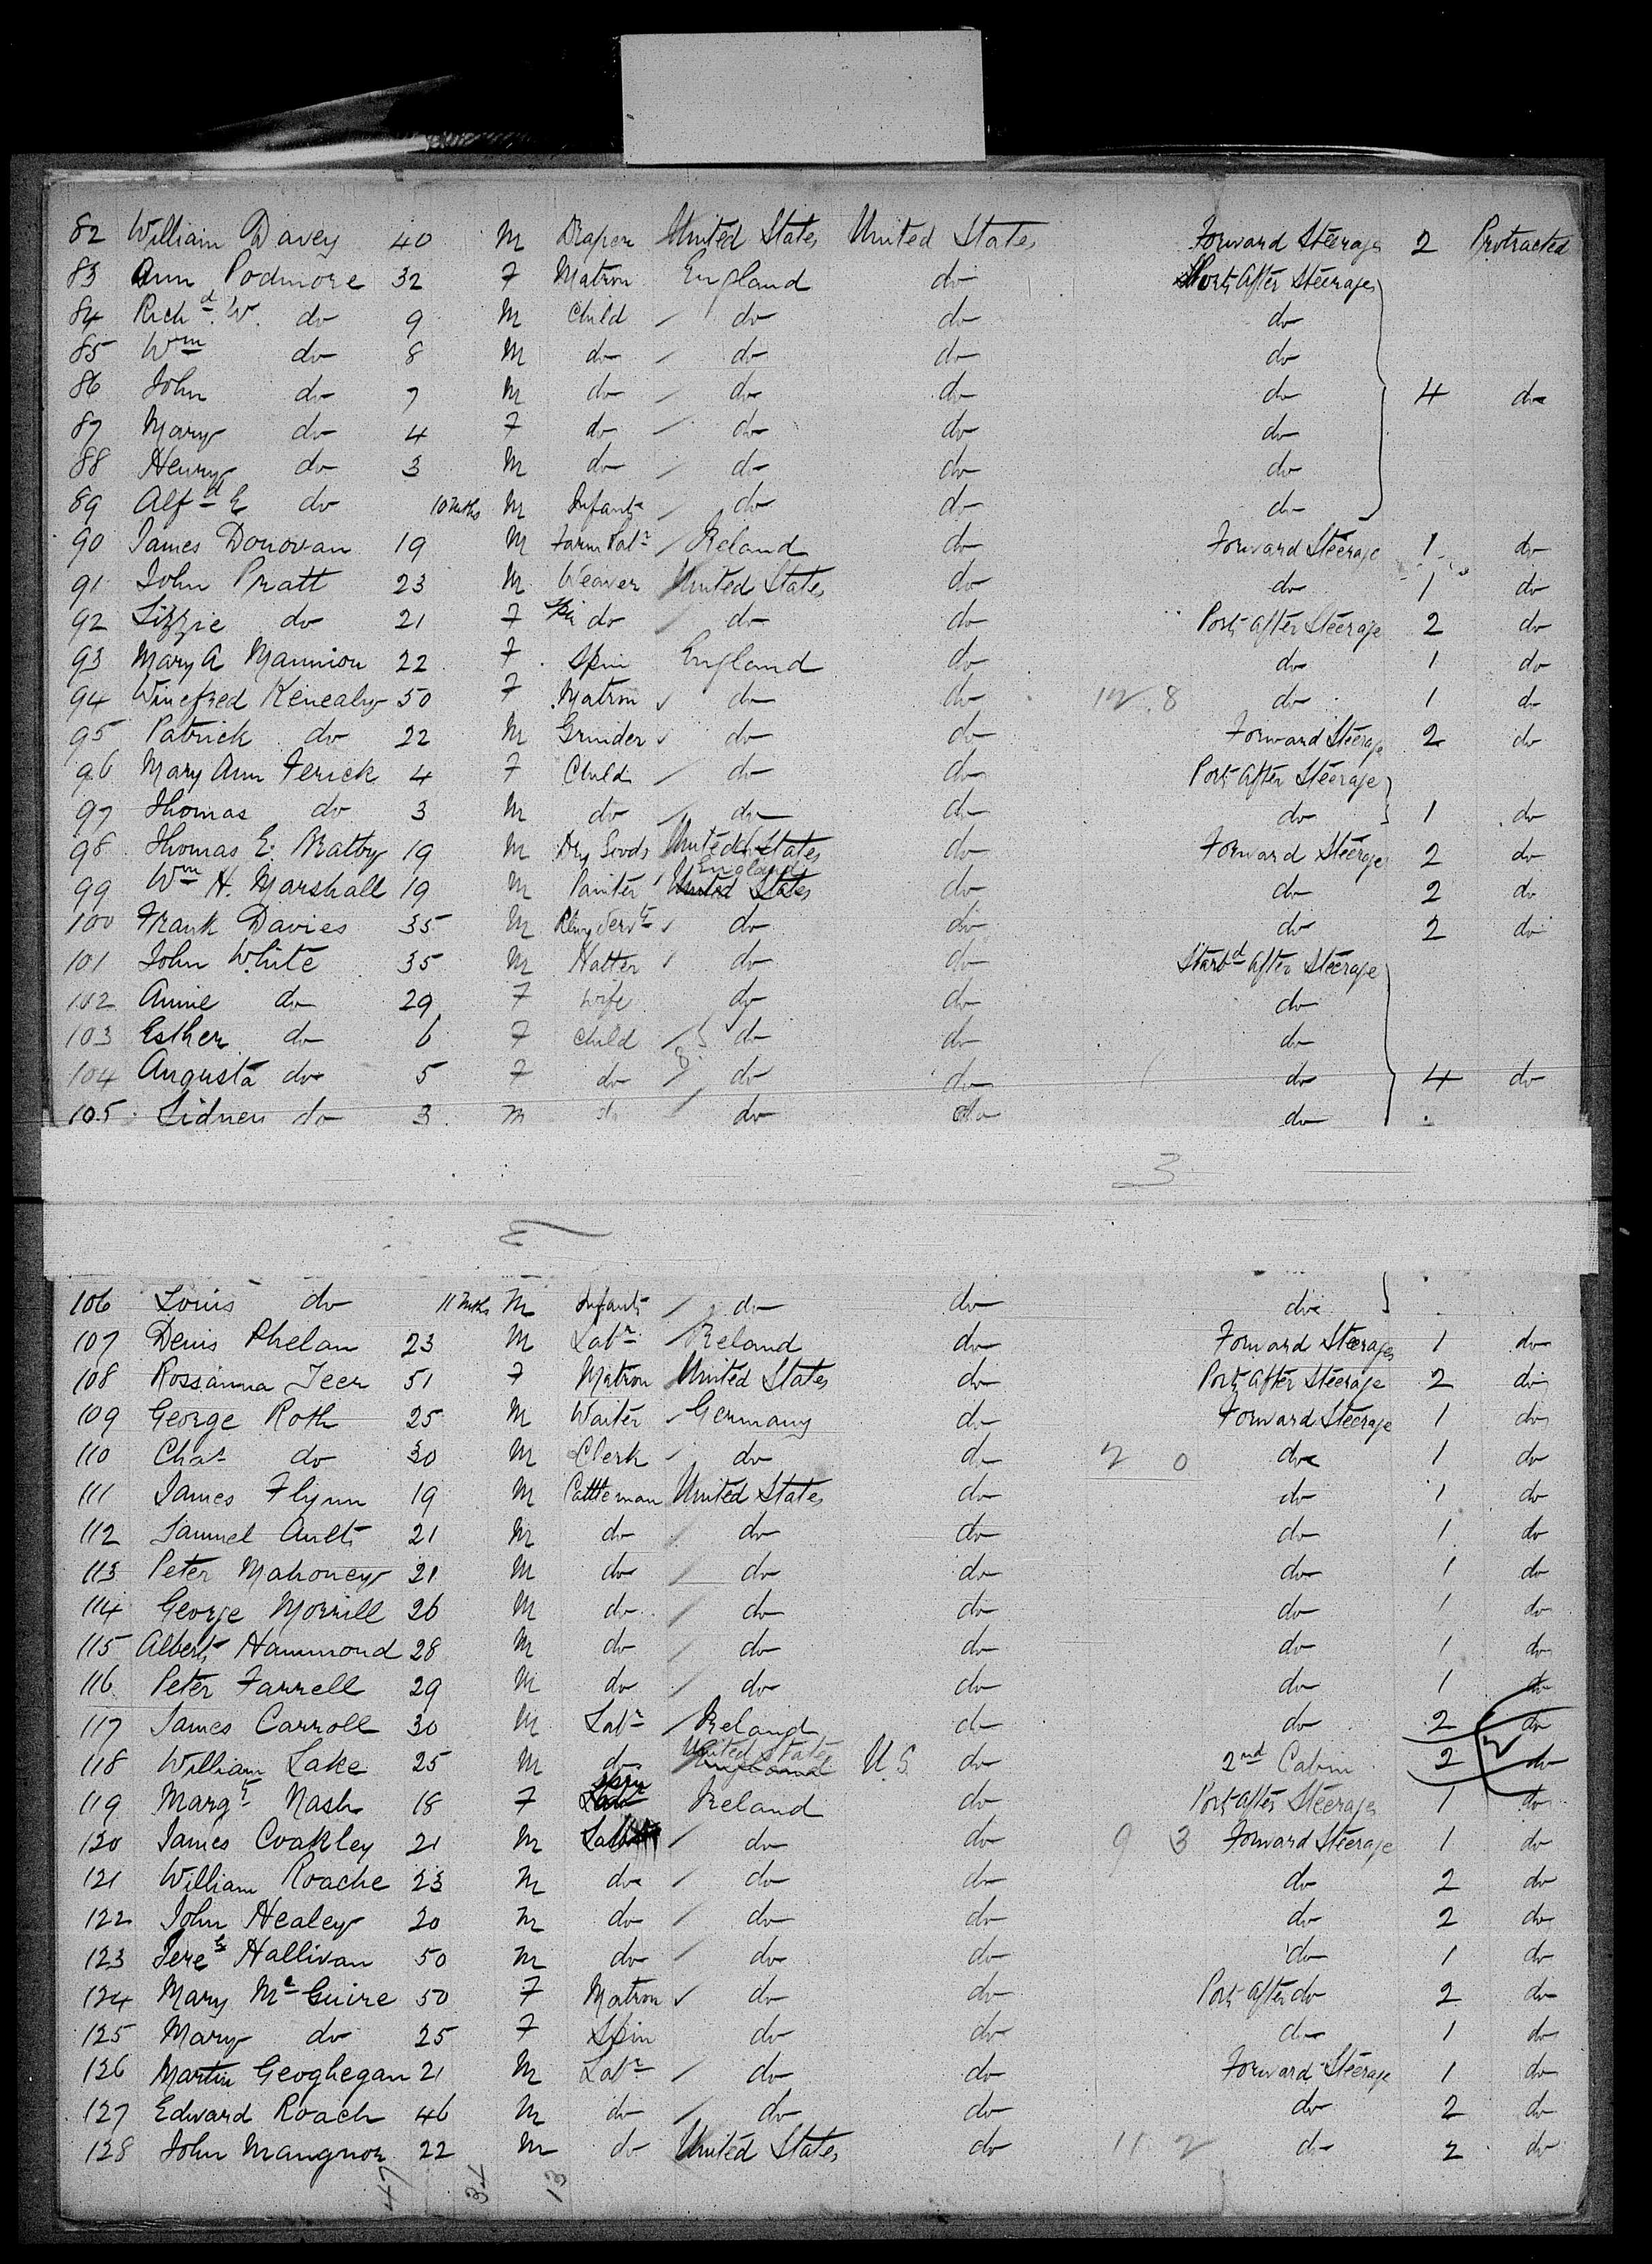 82 William Davey 40 M Draper United States United States Forward Steerage 2 Protracted
83 Ann Podmore 32 F Matron England do Port After Steerage
84 Richd. W. do 9 M Child / do do do
85 Wm do 8 M do / do do do
86 John do 7 M do / do do do 4 do
87 Mary do 4 F do / do do do
88 Henry do 3 M do / do do do
89 Alfd E do 10 mths M Infant / do do do
90 James Donovan 19 M Farm Labr / Ireland do Forward Steerage 1 do
91 John Pratt 23 M Weaver United States do do 1 do
92 Lizzie do 21 F do / do do Port After Steerage 2 do
93 Mary A Mannion 22 F Spin England do do 1 do
94 Winefred Kenealy 50 F Matron ✓ do do 12 8 do 1 do
95 Patrick do 22 M Grinder ✓ do do Forward Steerage 2 do
96 Mary Ann Ferick 4 F Child / do do Port After Steerage
97 Thomas do 3 M do / do do do 1 do
98 Thomas E. 19 M Dry Goods United States do Forward Steerage 2 do
99 Wm H. Marshall 19 M Painter England United States do do 2 do
100 Frank Davies 35 M ✓ do do do 2 do
101 John White 35 M Hatter ✓ do do Starbd After Steerage
102 Annie do 29 F Wife do do do
103 Esther do 6 F Child / do do do
104 Augusta do 5 F do / 8 do do do 4 do
105 Sidney do 3 M do / do do do
3
106 Louis do 11 mths M Infant / do do do
107 Denis Phelan 23 M Labr / Ireland do Forward Steerage 1 do
108 Rossanna Jeer 51 F Matron United States do Port After Steerage 2 do
109 George Roth 25 M Waiter Germany do Forward Steerage 1 do
110 Chas do 30 M Clerk do do 2 0 do 1 do
111 James Flynn 19 M Cattleman United States do do 1 do
112 Samuel Ault 21 M do / do do do 1 do
113 Peter Mahoney 21 M do / do do do 1 do
114 George Morrill 26 M do / do do do 1 do
115 Albert Hammond 28 M do / do do do 1 do
116 Peter Farrell 29 M do / do do do 1 do
117 James Carroll 30 M Labr / Ireland do do 2 do
118 William Lake 25 M do United States England U.S. do 2nd Cabin 2 do
119 Margt Nash 18 F Spin Labr Ireland do Port After Steerage 1 do
120 James Coakley 21 M Labr / do do 9 3 Forward Steerage 1 do
121 William Roache 23 M do / do do do 2 do
122 John Healey 20 M do / do do do 2 do
123 Jereh Hallivan 50 M do / do do do 1 do
124 Mary McGuire 50 F Matron ✓ do do Port After do 2 do
125 Mary do 25 F Spin do do do 1 do
126 Martin Geoghegan 21 M Labr / do do Forward Steerage 1 do
127 Edward Roach 46 M do / do do do 2 do
128 John Mangnon 22 M do United States do 11 2 do 2 do
47 34 13